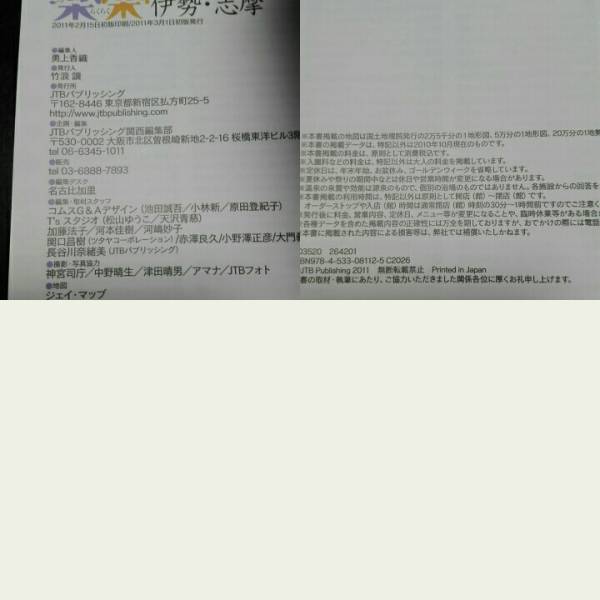 楽楽 伊勢・志摩
らくらく
2011年2月15日初版印刷/2011年3月1日初版発行
●編集人
勇上香織
●発行人
竹浪 譲
●発行所
JTBパブリッシング
〒162-8446 東京都新宿区払方町25-5
http://www.jtbpublishing.com
●企画・編集
JTBパブリッシング関西編集部
〒530-0002 大阪市北区曽根崎新地2-2-16 桜橋東洋ビル3階
tel 06-6345-1011
●販売
tel 03-6888-7893
●編集デスク
名古比加里
●編集・取材スタッフ
コムスG&Aデザイン (池田誠吾/小林新/原田登紀子)
T'sスタジオ (松山ゆうこ/天沢青慈)
加藤法子/河本佳樹/河嶋妙子
関口昌樹 (ツタヤコーポレーション) /赤澤良久/小野澤正彦/大門義
長谷川奈緒美 (JTBパブリッシング)
●撮影・写真協力
神宮司庁/中野晴生/津田晴男/アマナ/JTBフォト
●地図
ジェイ・マップ
※本書掲載の地図は国土地理院発行の2万5千分の1地形図、5万分の1地形図、20万分の1地勢
※本書の掲載データは、特記以外は2010年10月現在のものです。
※本書掲載の料金は、原則として消費税込です。
※入園料などの料金は、特記以外は大人の料金を掲載しています。
※定休日は、年末年始、お盆休み、ゴールデンウィークを省略しています。
※夏休みや祭りの期間中などは休日や営業時間が変更になる場合があります。
※温泉の泉質や効能は源泉のもので、個別の浴槽のものではありません。各施設からの回答を
※本書掲載の利用時間は、特記以外は原則として開店(館)〜閉店(館)です。
オーダーストップや入店(館)時間は通常閉店(館)時刻の30分〜1時間前ですのでご注意く
※発行後に料金、営業内容、定休日、メニュー等が変更になることや、臨時休業等がある場合が
※各種データを含めた掲載内容の正確性には万全を期しておりますが、おでかけの際には電話
※本書に掲載された内容による損害等は、弊社では補償いたしかねます。
03520 264201
BN978-4-533-08112-5 C2026
JTB Publishing 2011 無断転載禁止 Printed in Japan
書の取材・執筆にあたり、ご協力いただきました関係各位に厚くお礼申し上げます。